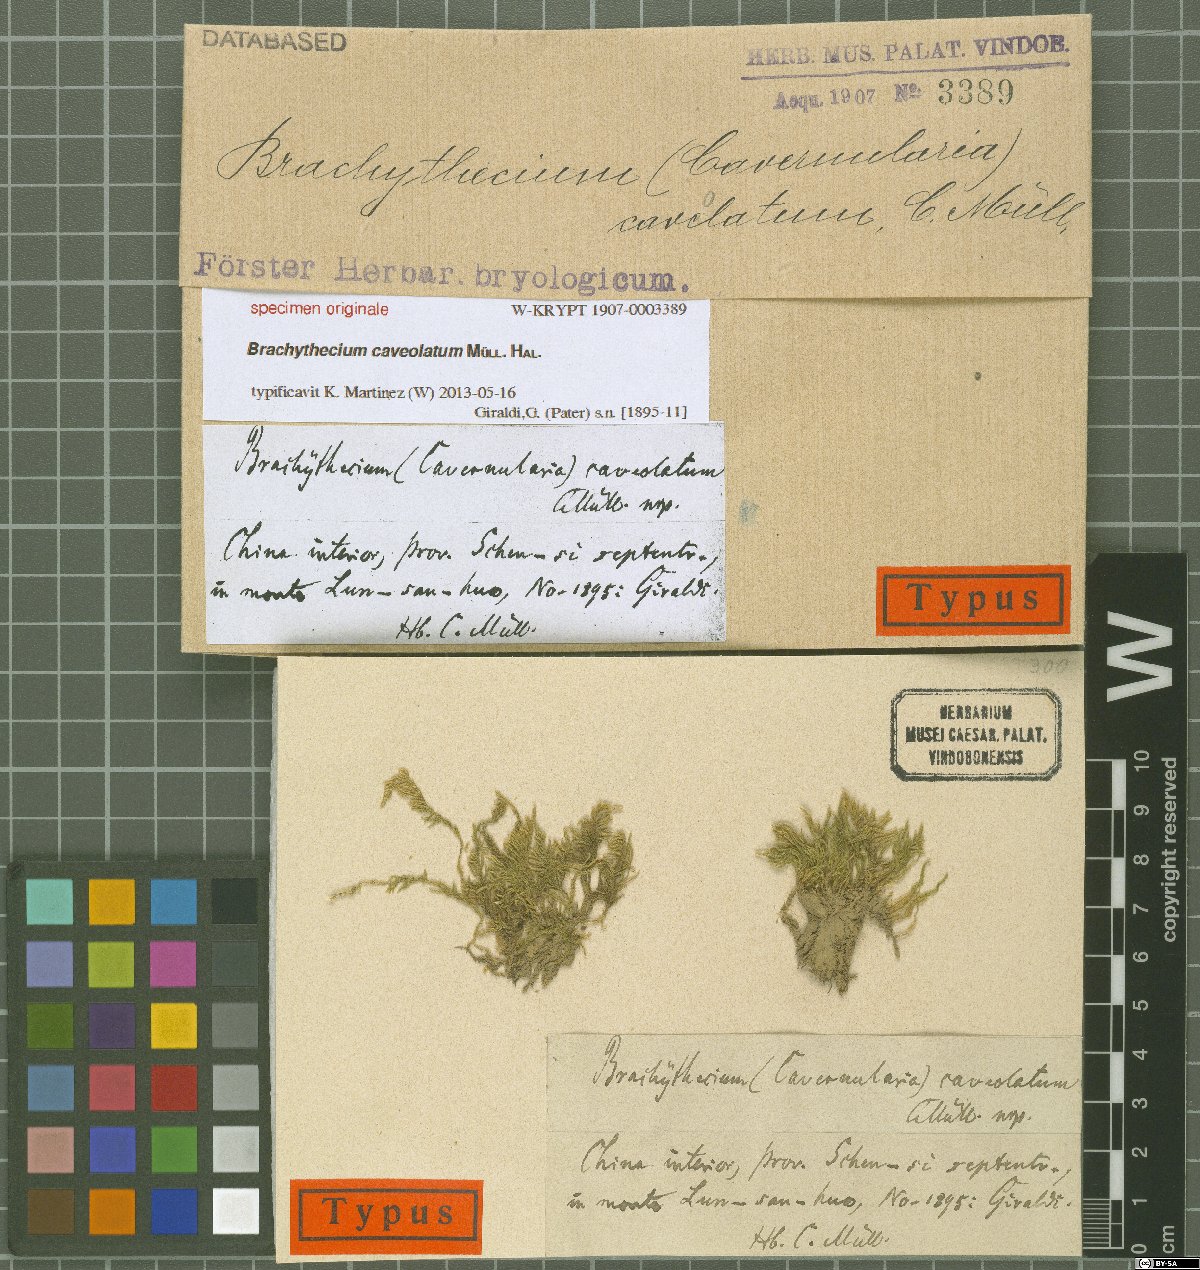 DATABASED
HERB. MUS. PALAT. VINDOB.
Acqu. 1907 No. 3389
Brachythecium (Cavernularia)
caveolatum, C. Müll,
Förster Herbar. bryologicum.
specimen originale W-KRYPT 1907-0003389
Brachythecium caveolatum MÜLL. HAL.
typificavit K. Martinez (W) 2013-05-16
Giraldi,G. (Pater) s.n. [1895-11]
Brachÿthecium (Cavernularia) caveolatum
CMüll. nsp.
China interior, prov. Schen-si septentr.,
in monte Lun-san-huo, No. 1895: Giraldi.
Hb. C. Müll.
Typus
300
HERBARIUM
MUSEI CAESAR. PALAT.
VINDOBONENSIS
Brachÿthecium (Cavernularia) caveolatum
CMüll. nsp.
China interior, prov. Schen-si septentr.,
in monte Lun-san-huo, No. 1895: Giraldi.
Hb. C. Müll.
Typus
W
10
9
8
7
6
5
4
3
2
1
0
cm
copyright reserved
cc BY-SA